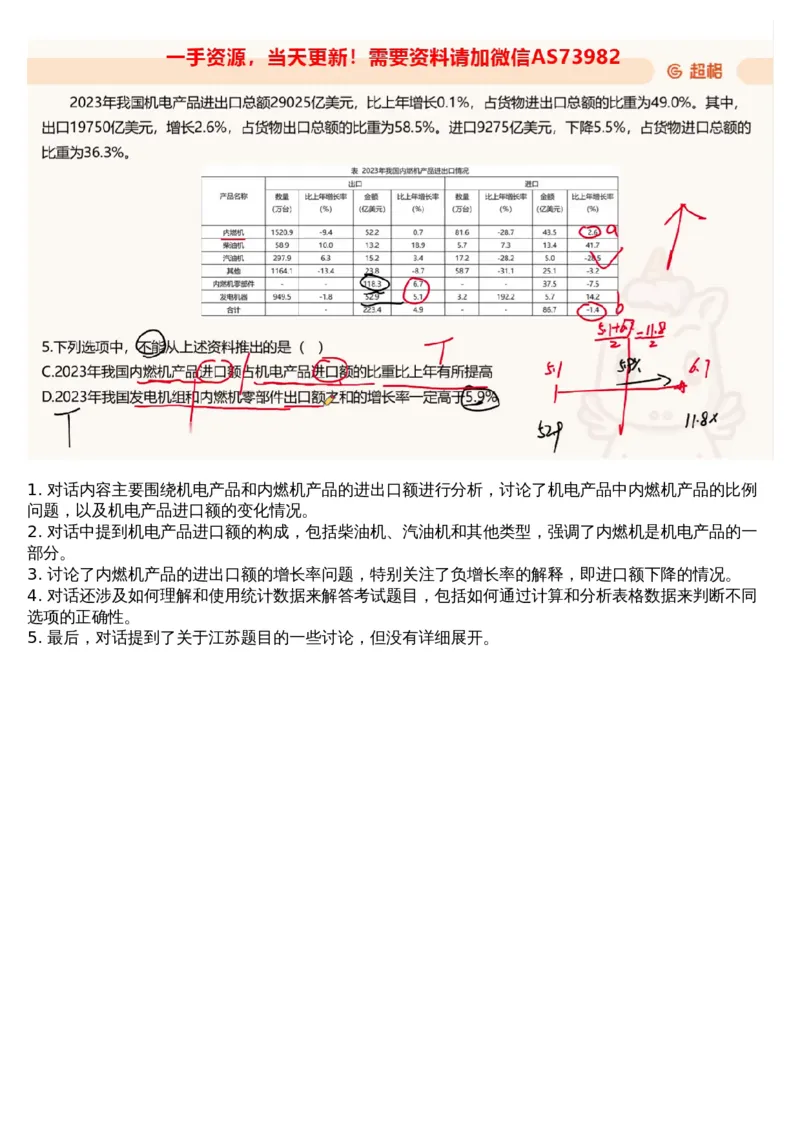 一手资源，当天更新！需要资料请加微信AS73982
超格
2023年我国机电产品进出口总额29025亿美元，比上年增长0.1%，占货物进出口总额的比重为49.0%。其中，
出口19750亿美元，增长2.6%，占货物出口总额的比重为58.5%。进口9275亿美元，下降5.5%，占货物进口总额的
比重为36.3%。
表 2023年我国内燃机产品进出口情况
产品名称 出口 进口
数量 比上年增长率 金额 比上年增长率 数量 比上年增长率 金额 比上年增长率
(万台) (%) (亿美元) (%) (万台) (%) (亿美元) (%)
内燃机 1520.9 -9.4 52.2 0.7 81.6 -28.7 43.5 2.6 a
柴油机 58.9 10.0 13.2 18.9 5.7 7.3 13.4 41.7
汽油机 297.9 6.3 15.2 3.4 17.2 -28.2 5.0 -28.5
其他 1164.1 -13.4 23.8 -8.7 58.7 -31.1 25.1 -3.2
内燃机零部件 - - 118.3 6.7 - - 37.5 -7.5
发电机器 949.5 -1.8 52.9 5.1 3.2 192.2 5.7 14.2
合计 - - 223.4 4.9 - - 86.7 -1.4 b
5.1+6.7/2 = 11.8/2
5.下列选项中，不能从上述资料推出的是（ ）
C.2023年我国内燃机产品进口额占机电产品进口额的比重比上年有所提高 T
D.2023年我国发电机组和内燃机零部件出口额之和的增长率一定高于5.9%
T
5.1 5.9% 6.7
52.9 11.8x
1. 对话内容主要围绕机电产品和内燃机产品的进出口额进行分析，讨论了机电产品中内燃机产品的比例
问题，以及机电产品进口额的变化情况。
2. 对话中提到机电产品进口额的构成，包括柴油机、汽油机和其他类型，强调了内燃机是机电产品的一
部分。
3. 讨论了内燃机产品的进出口额的增长率问题，特别关注了负增长率的解释，即进口额下降的情况。
4. 对话还涉及如何理解和使用统计数据来解答考试题目，包括如何通过计算和分析表格数据来判断不同
选项的正确性。
5. 最后，对话提到了关于江苏题目的一些讨论，但没有详细展开。